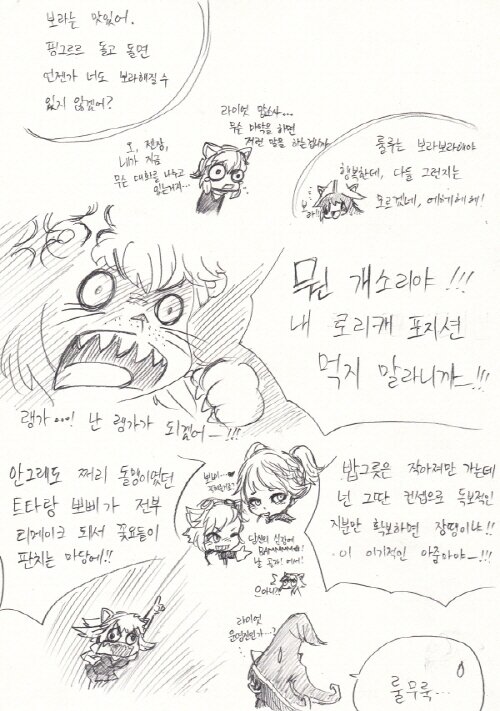 보라는 맛있어.
핑그르르 돌고 돌면
언젠가 너도 보라해질 수
있지 않겠어?
라이엇 맙소사...
무슨 마약을 하면
저런 말을 하는겁니까
오, 젠장,
내가 지금
무슨 대화를 나누고
있는거지...
룰루는 보라보라해야
행복한데, 다들 그런지는
모르겠네, 에헤헤헤!
뭔 개소리야!!!
내 로리캐 포지션
먹지 말라니까-!!!
랭가...! 난 렝가가 되겠어-!!!
안그래도 쩌리 동맹이였던
E타랑 뽀삐가 전부
리메이크 되서 꽃요들이
판치는 마당에!!
뽀삐...♥
으아니?!
밥그릇은 작아져만 가는데
넌 그딴 컨셉으로 독보적인
지분만 확보하면 장땡이냐!!
이 이기적인 아줌마야-!!!
라이엇
운영진인가...?
룰무룩...